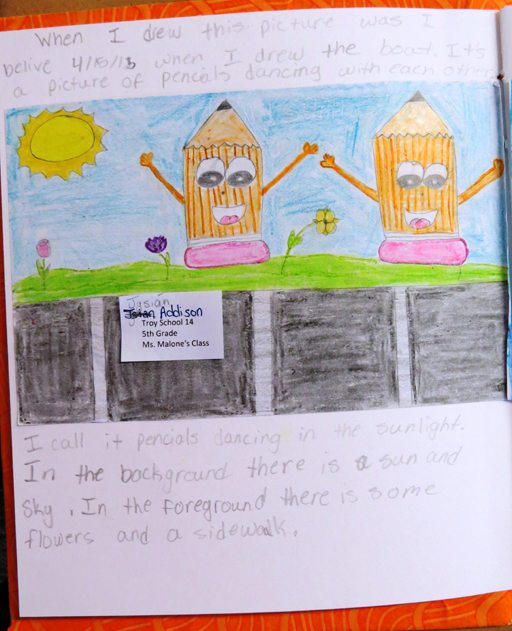 When I drew this picture was I
belive 4/15/13 when I drew the boat. It's
a picture of pencials dancing with each other
Jysian
Addison
Troy School 14
5th Grade
Ms. Malone's Class
I call it pencials dancing in the sunlight.
In the background there is a sun and
sky. In the foreground there is some
flowers and a sidewalk.